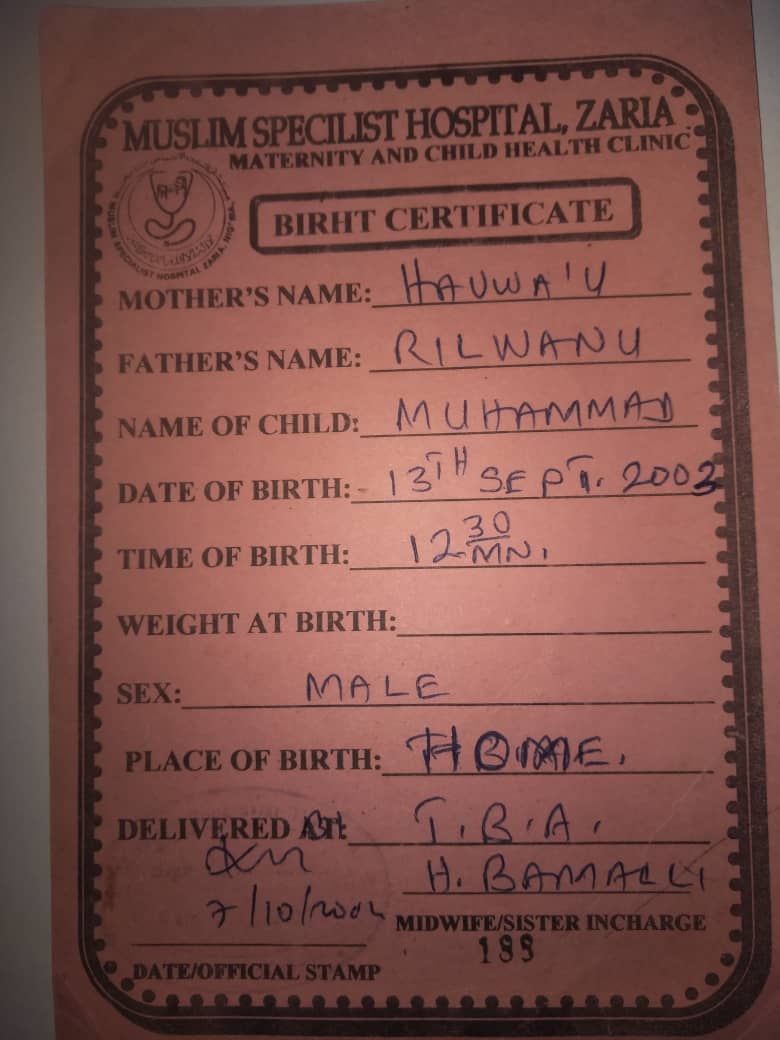 MUSLIM SPECILIST HOSPITAL, ZARIA
MATERNITY AND CHILD HEALTH CLINIC
BIRHT CERTIFICATE
MUSLIM SPECIALIST HOSPITAL ZARIA, NIGERIA
MOTHER'S NAME: HAUWA'U
FATHER'S NAME: RILWANU
NAME OF CHILD: MUHAMMAD
DATE OF BIRTH:- 13TH SEPT. 2003
TIME OF BIRTH: 12 30 MN.
WEIGHT AT BIRTH:
SEX: MALE
PLACE OF BIRTH: HOME.
DELIVERED BY: T.B.A.
H. BAMALLI
7/10/
MIDWIFE/SISTER INCHARGE
199
DATE/OFFICIAL STAMP